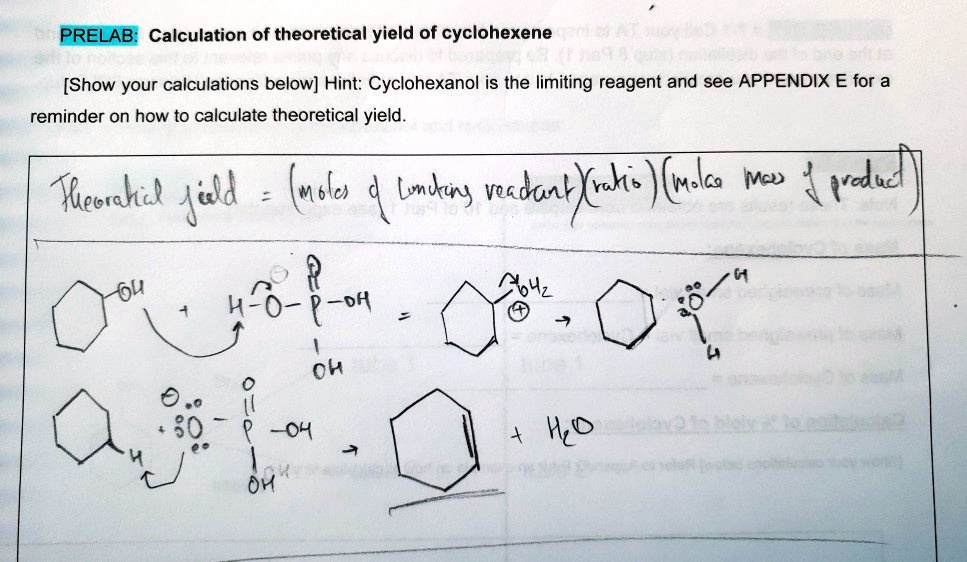 PRELAB: Calculation of theoretical yield of cyclohexene
[Show your calculations below] Hint: Cyclohexanol is the limiting reagent and see APPENDIX E for a
reminder on how to calculate theoretical yield.
Theoratical yield = (moles of limiting reactant)(ratio)(molar mass of product)
OH + H-O-P-OH = OH2 → O H
OH H
H + O - P -OH → + H2O
O
OH